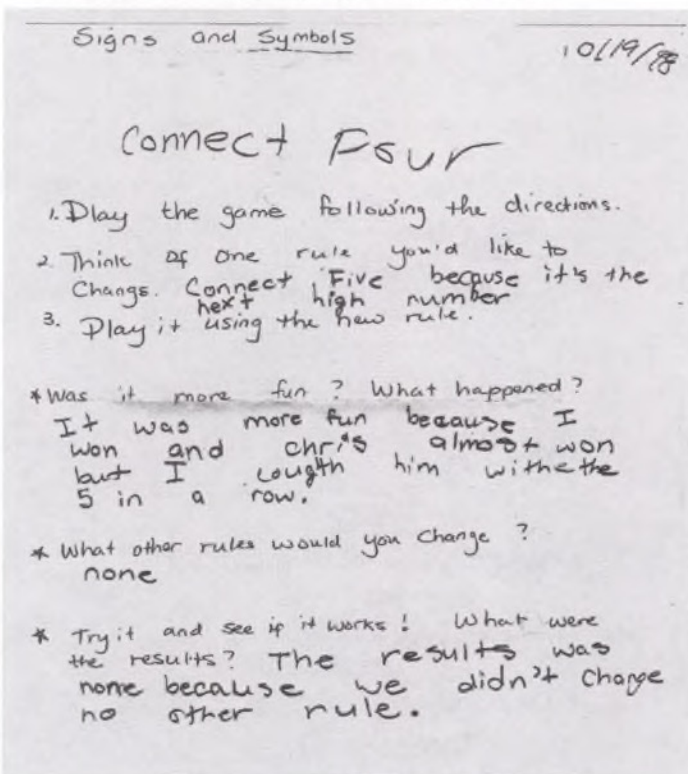 Signs and Symbols
10/19/98
Connect Four
1. Play the game following the directions.
2. Think of one rule you'd like to
Change. Connect Five because it's the
next high number
3. Play it using the new rule.
* Was it more fun? What happened?
It was more fun because I
won and chris almost won
but I cougth him withethe
5 in a row.
* What other rules would you change?
none
* Try it and see if it works! What were
the results? The results was
none because we didn't change
no other rule.